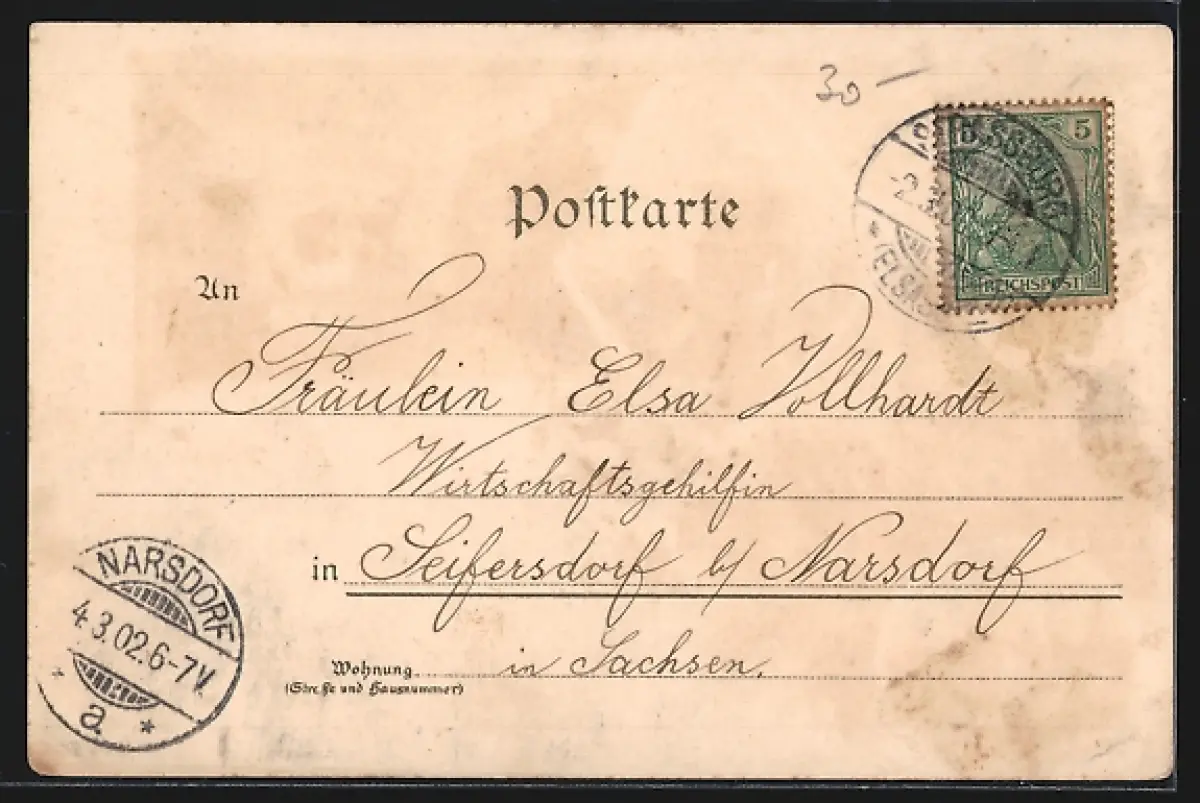 30 —
5
REICHSPOST
(ELSASS
Postkarte
An
Fräulein Elsa Vollhardt
Wirtschaftsgehilfin
in Seifersdorf b/ Narsdorf
Wohnung in Sachsen.
(Straße und Hausnummer)
NARSDORF
4.3.02.6-7V.
a.